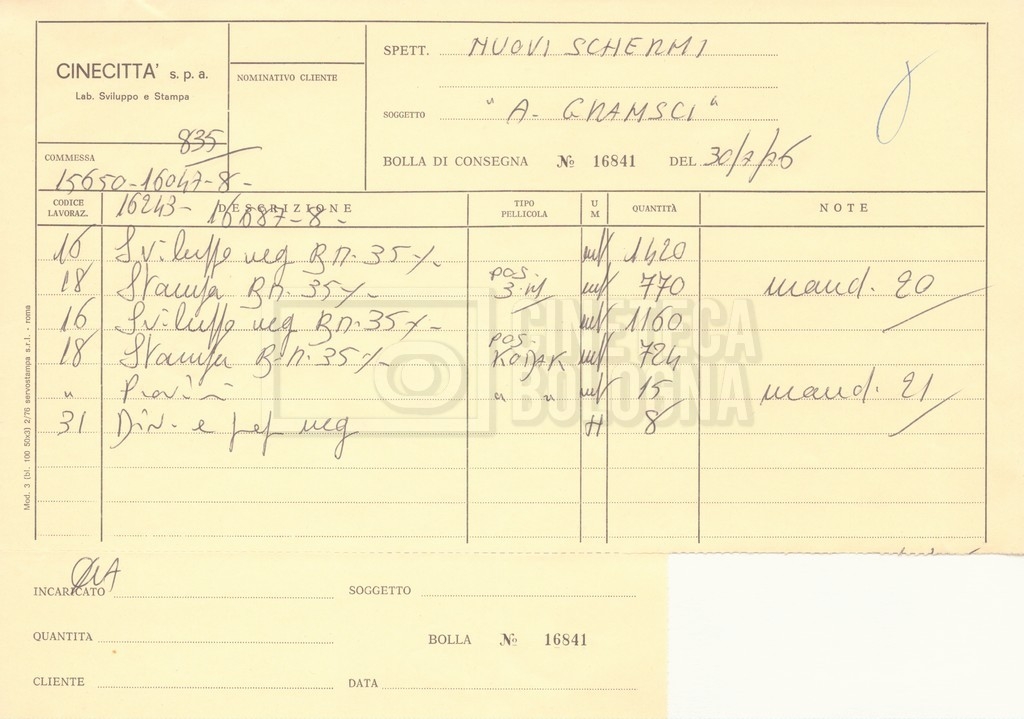 CINECITTA' s. p. a.
Lab. Sviluppo e Stampa
NOMINATIVO CLIENTE
SPETT. NUOVI SCHERMI
SOGGETTO "A. GRAMSCI"
BOLLA DI CONSEGNA № 16841 DEL 30/7/76
835
COMMESSA
15650-16047-8-
16243- 16687-8-
CODICE LAVORAZ. DESCRIZIONE TIPO PELLICOLA U M QUANTITÀ NOTE
16 Sviluppo neg B.N. 35 mt 1420
18 Stampa B.N. 35 pos. 3.M mt 770 mand. 20
16 Sviluppo neg B.N. 35 mt 1160
18 Stampa B.N. 35 pos. KODAK mt 724
" Provin " " mt 15 mand. 21
31 Div. e neg H 8
CINETECA
BOLOGNA
Mod. 3 (bl. 100 50x3) 2/76 servostampa s.r.l. - roma
INCARICATO SOGGETTO
QUANTITA BOLLA № 16841
CLIENTE DATA